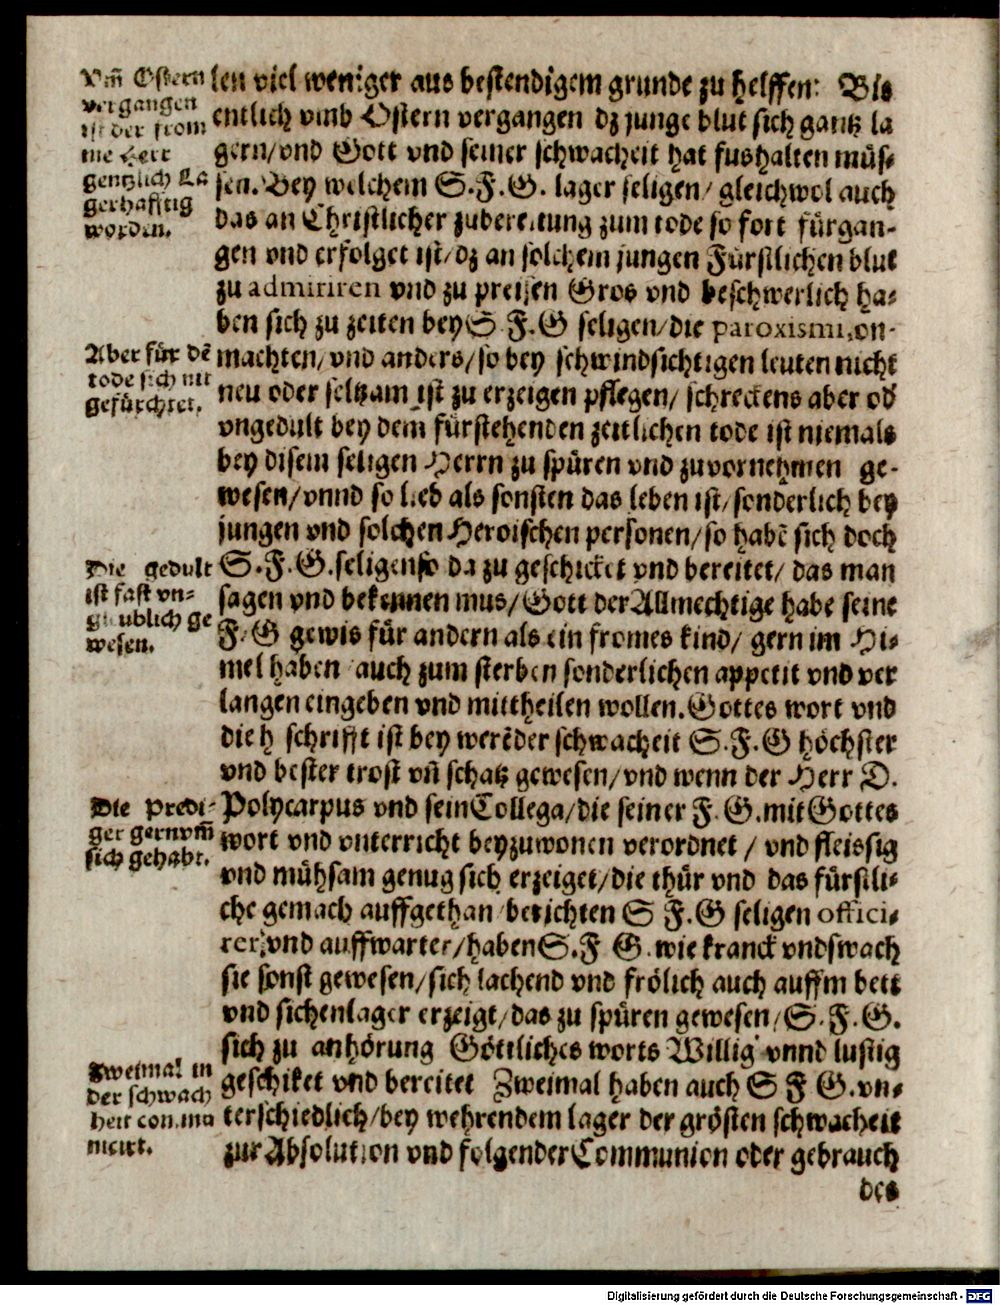 Vm̃ Ostern
vergangen
ist der from
me Herr
gentzlich La
gerhafftig
worden.
len viel weniger aus bestendigem grunde zu helffen: Bis
entlich vmb Ostern vergangen dz junge blut sich gantz la
gern/vnd Gott vnd seiner schwacheit hat fushalten müs-
sen. Bey welchem S.F.G. lager seligen/ gleichwol auch
das an Christlicher zubereitung zum tode so fort fürgan-
gen vnd erfolget ist/dz an solchem jungen Fürstlichen blut
zu admiriren vnd zu preisen Gros vnd beschwerlich ha-
ben sich zu zeiten bey S F.G seligen/die paroxismi, on-
Aber für dē
tode sich nit
gefürchtet.
machten/vnd anders/so bey schwindsichtigen leuten nicht
neu oder seltzam ist zu erzeigen pflegen/ schreckens aber od
vngedult bey dem fürstehenden zeitlichen tode ist niemals
bey disem seligen Herrn zu spüren vnd zuvornehmen ge-
wesen/vnnd so lieb als sonsten das leben ist/sonderlich bey
jungen vnd solchen Heroischen personen/so habē sich doch
Die gedult
ist fast vn-
gleublich ge
wesen.
S.F.G.seligen so da zu geschicket vnd bereitet/ das man
sagen vnd bekennen mus/Gott der Allmechtige habe seine
F.G gewis für andern als ein fromes kind/ gern im Hi-
mel haben auch zum sterben sonderlichen appetit vnd ver
langen eingeben vnd mittheilen wollen. Gottes wort vnd
die h schrifft ist bey werēder schwacheit S.F.G höchster
vnd bester trost vn̄ schatz gewesen/vnd wenn der Herr D.
Die Predi-
ger gern vm̃
sich gehabt.
Polycarpus vnd sein Collega/die seiner F.G.mit Gottes
wort vnd vnterricht beyzuwonen verordnet / vnd fleissig
vnd mühsam genug sich erzeiget/die thür vnd das fürstli-
che gemach auffgethan/berichten S F.G seligen offici-
rer/vnd auffwarter/haben S.F G.wie kranck vnd swach
sie sonst gewesen/sich lachend vnd frölich auch auffm bett
vnd sichenlager erzeigt/das zu spüren gewesen/S.F.G.
sich zu anhörung Göttliches worts Willig vnnd lustig
Zweimal in
der schwach
heit commu
niciert.
geschiket vnd bereitet Zweimal haben auch S F G.vn-
terschiedlich/bey wehrendem lager der grösten schwacheit
zur Absolution vnd folgender Communion oder gebrauch
des
Digitalisierung gefördert durch die Deutsche Forschungsgemeinschaft - DFG